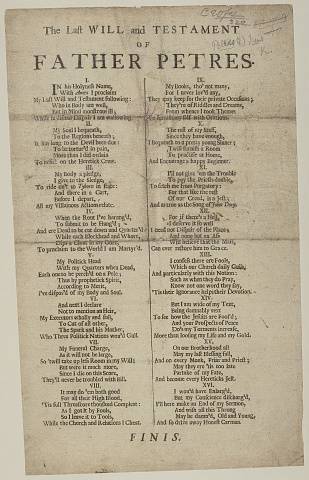 The Last WILL and TESTAMENT
OF
FATHER PETRES.
I.
IN his Holyness Name,
With above I proclaim
My Last Will and Testament following:
Who in Body am well,
While to defeat Despair I am
II.
My Soul I bequeath,
To the Regions beneath;
It has long to the Devil been due:
To be tortur'd in pain,
More than I did ordain
To inflict on the Heretick Crew.
III.
My Body a pledge,
I give to the Sledge,
To ride in't to Tyburn in state:
And there in a Cart,
before I depart,
All my Villainous Actions relate.
IV.
When the Rout I've harang'd,
To submit to be Hang'd;
And are Dead to be cut down and Quarter'd:
While each Blockhead and Whore,
Dips a Clout in my Gore,
To proclaim to the World I am Martyr'd.
V.
My Politick Head
With my Quarters when Dead,
Each one to be perch'd on a Pole;
Thus by prophetick Spirit,
According to Merit,
I've dispos'd of my Body and Soul.
VI.
And next I declare
Not to mention an Heir,
My Executors wholly and sole,
To Cut off all other,
The Spark and his Mother,
Who Three Politick Nations wou'd Gull.
VII.
My Funeral Charge,
As it will not be large,
So 'twill take up less Room in my Will;
But were it much more,
Since I die on this Score,
They'll never be troubled with Bill.
VIII.
It may do 'em both good
For all their High Blood,
'Tis full Threescore thousand Compleat:
As I got it by Fools,
So I leave it to Tools,
While the Church and Relations I Cheat.
IX.
My Books, tho' not many,
For I never lov'd any,
They may keep for their private Occasions;
They're of Riddles and Dreams,
From whence I took Themes
X.
The rest of my Stuff,
Since they have enough,
I bequeath to a pretty young Sister;
Twill furnish a Room
To practise at Home,
And Encourage a happy Beginner.
XI.
I'll not give 'em the Trouble
To pay the Priests double,
To fetch me from Purgatory:
For that like the rest
Of our Creed, is a Jest;
And as true as the Song of John Dory.
XII.
For if there's a Hell,
I deserve it so well
I need not Despair of the Place;
And none but an Ass
Will believe that the Mass,
Can ever restore him to Grace.
XIII.
I confess there are Fools,
Which our Church daily Gulls,
And particularly with this Notion:
Such as when they do Pray,
Know not one word they say,
'Tis their Ignorance helps their Devotion.
XIV.
But I am wide of my Text,
Being damnably vext
To see how the Jesuits are Fool'd;
And your Prospects of Peace
Do's my Torments increase,
More than loosing my Life and my Gold.
XV.
On our Brotherhood all
May my last Blessing fall,
And on every Monk, Friar and Priest;
May they ere 'tis too late
Partake of my Fate,
And become every Hereticks Jest.
XVI.
I wou'd have Enlarg'd,
But my Conscience discharg'd,
I'll here make an End of my Sermon,
And wish all this Throng
May be damn'd, Old and Young,
And so drive away Honest Carman.
FINIS.